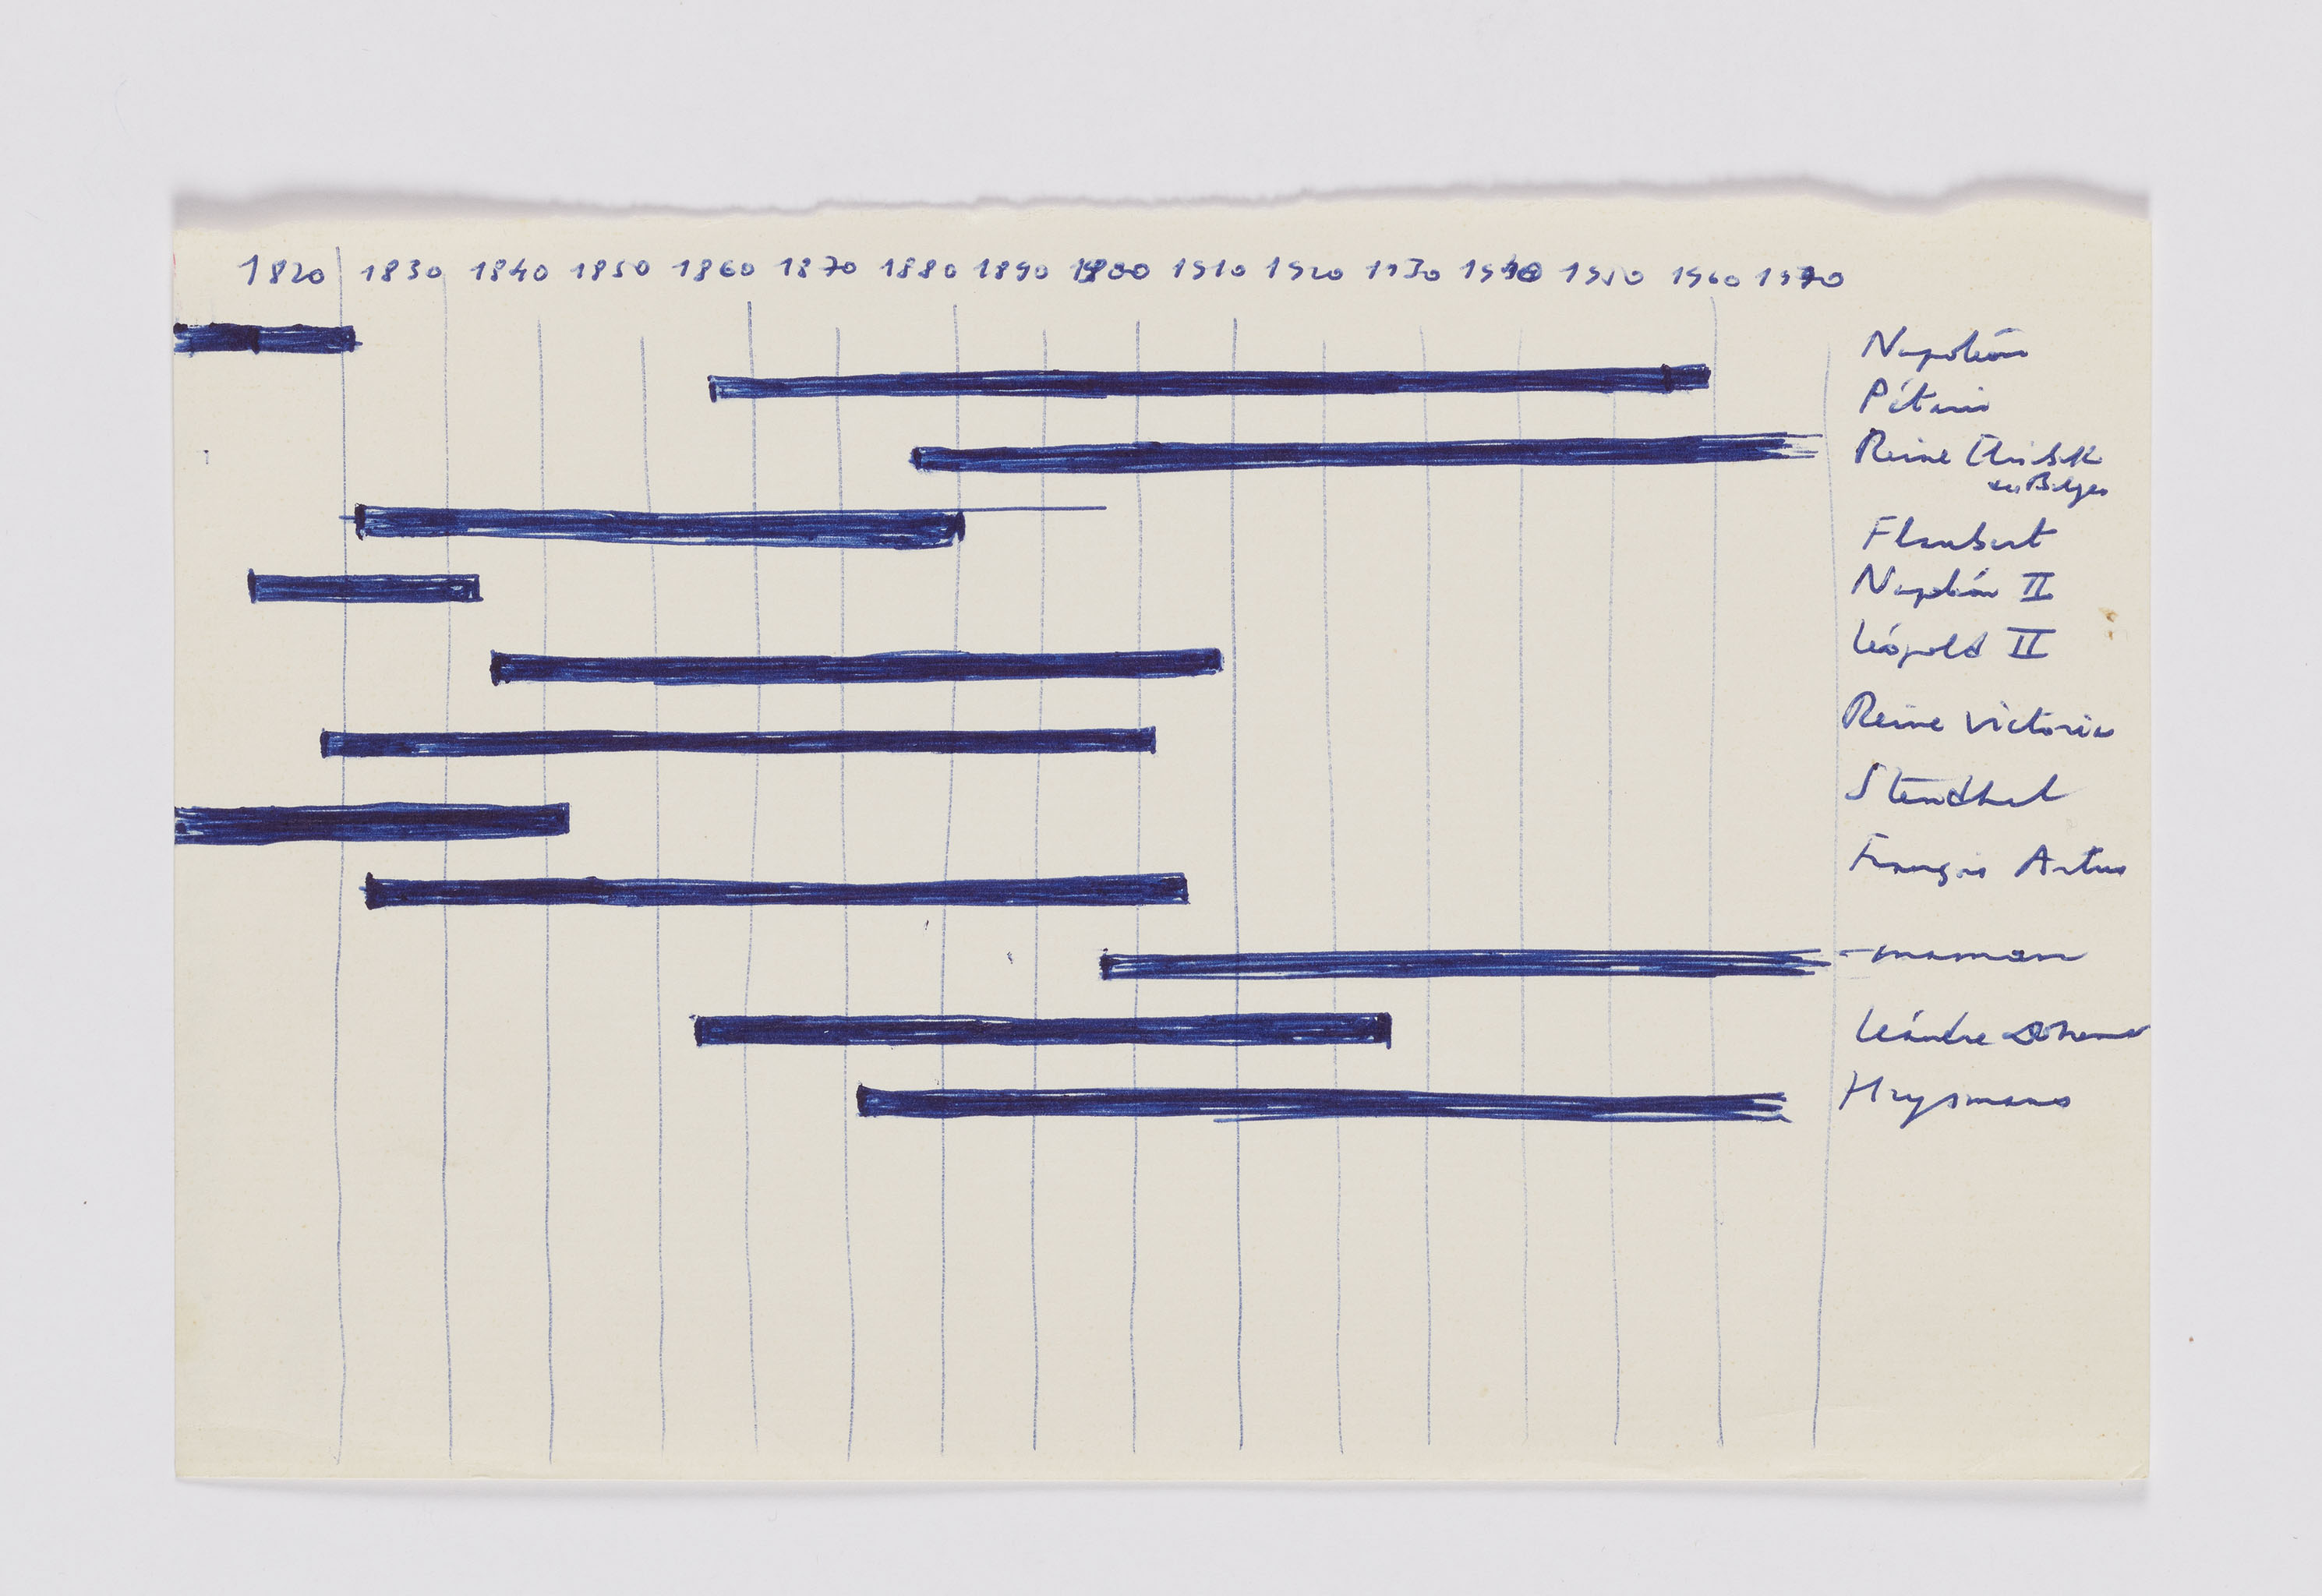 1820 1830 1840 1850 1860 1870 1880 1890 1900 1910 1920 1930 1940 1950 1960 1970
Napoléon
Pétain
Reine Elisabeth
des Belges
Flaubert
Napoléon II
Léopold II
Reine Victoria
Stendhal
François Artus
maman
Léandre
Huysmans